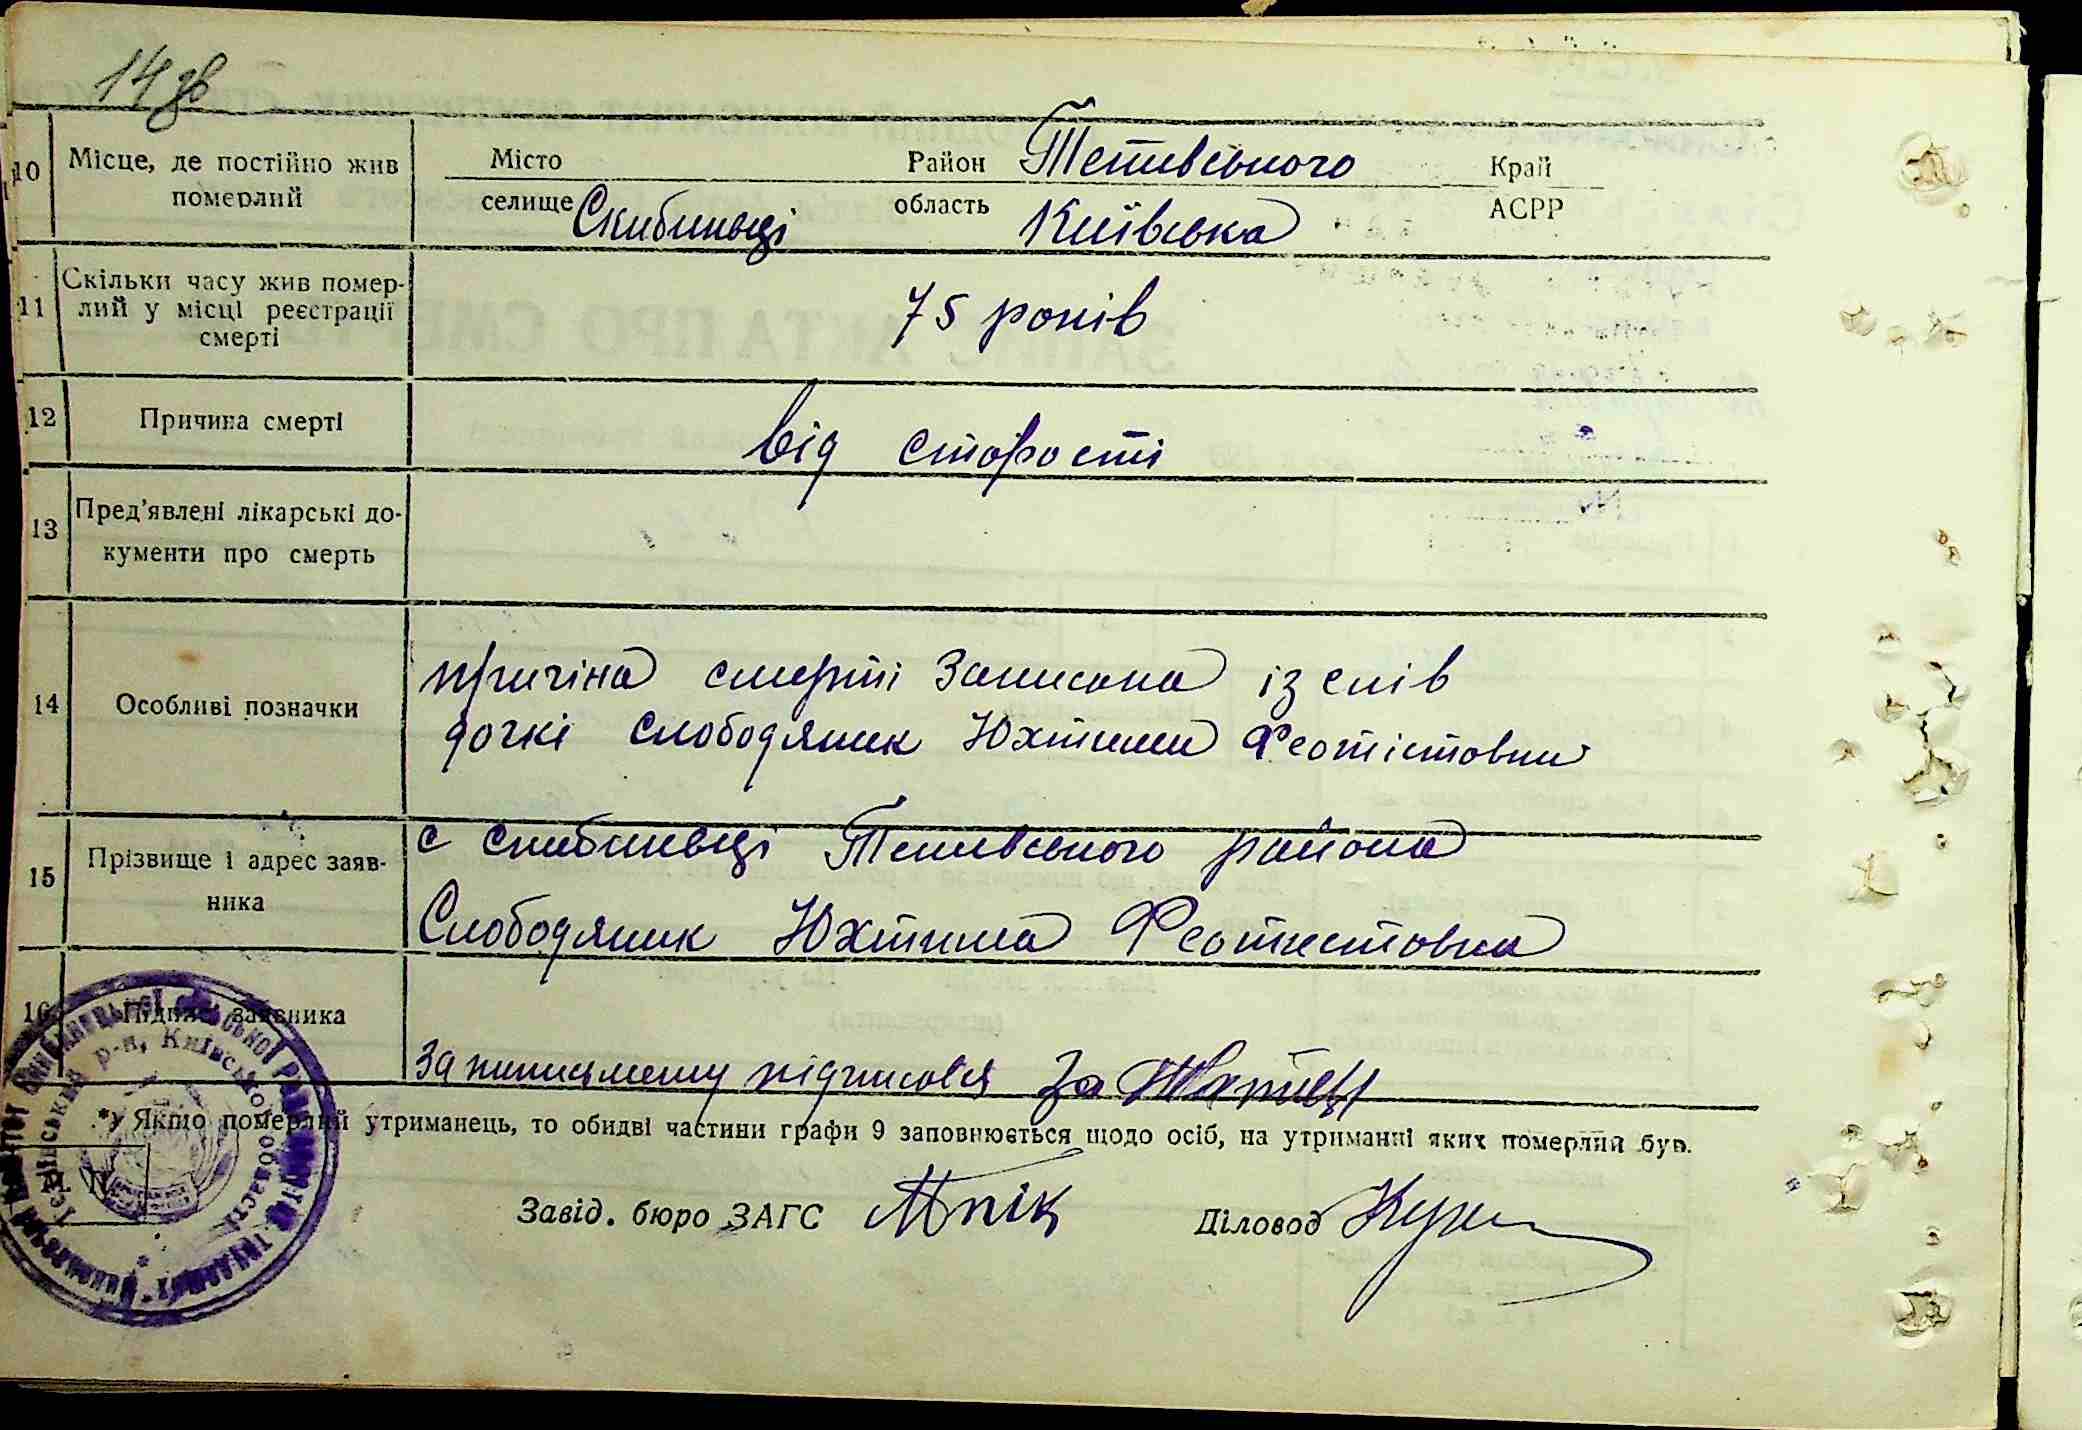 14 зв
10 Місце, де постійно жив померлий
Місто Район Тетивського Край
селище Скибиньці область Київська АСРР
11 Скільки часу жив помер-
лий у місці реєстрації
смерті
75 років
12 Причина смерті
від старості
13 Пред'явлені лікарські до-
кументи про смерть
14 Особливі позначки
причіна смерті записана із слів
дочкі Слободяник Юхтими Феотістовни
15 Прізвище і адрес заяв-
ника
с Скибиньці Тетивського района
Слободяник Юхтима Феотистовна
16 Підпис заявника
підписався за
*) Якщо померлий утриманець, то обидві частини графи 9 заповнюється щодо осіб, на утриманні яких померлий був.
Завід. бюро ЗАГС Діловод
р-н, Київської області